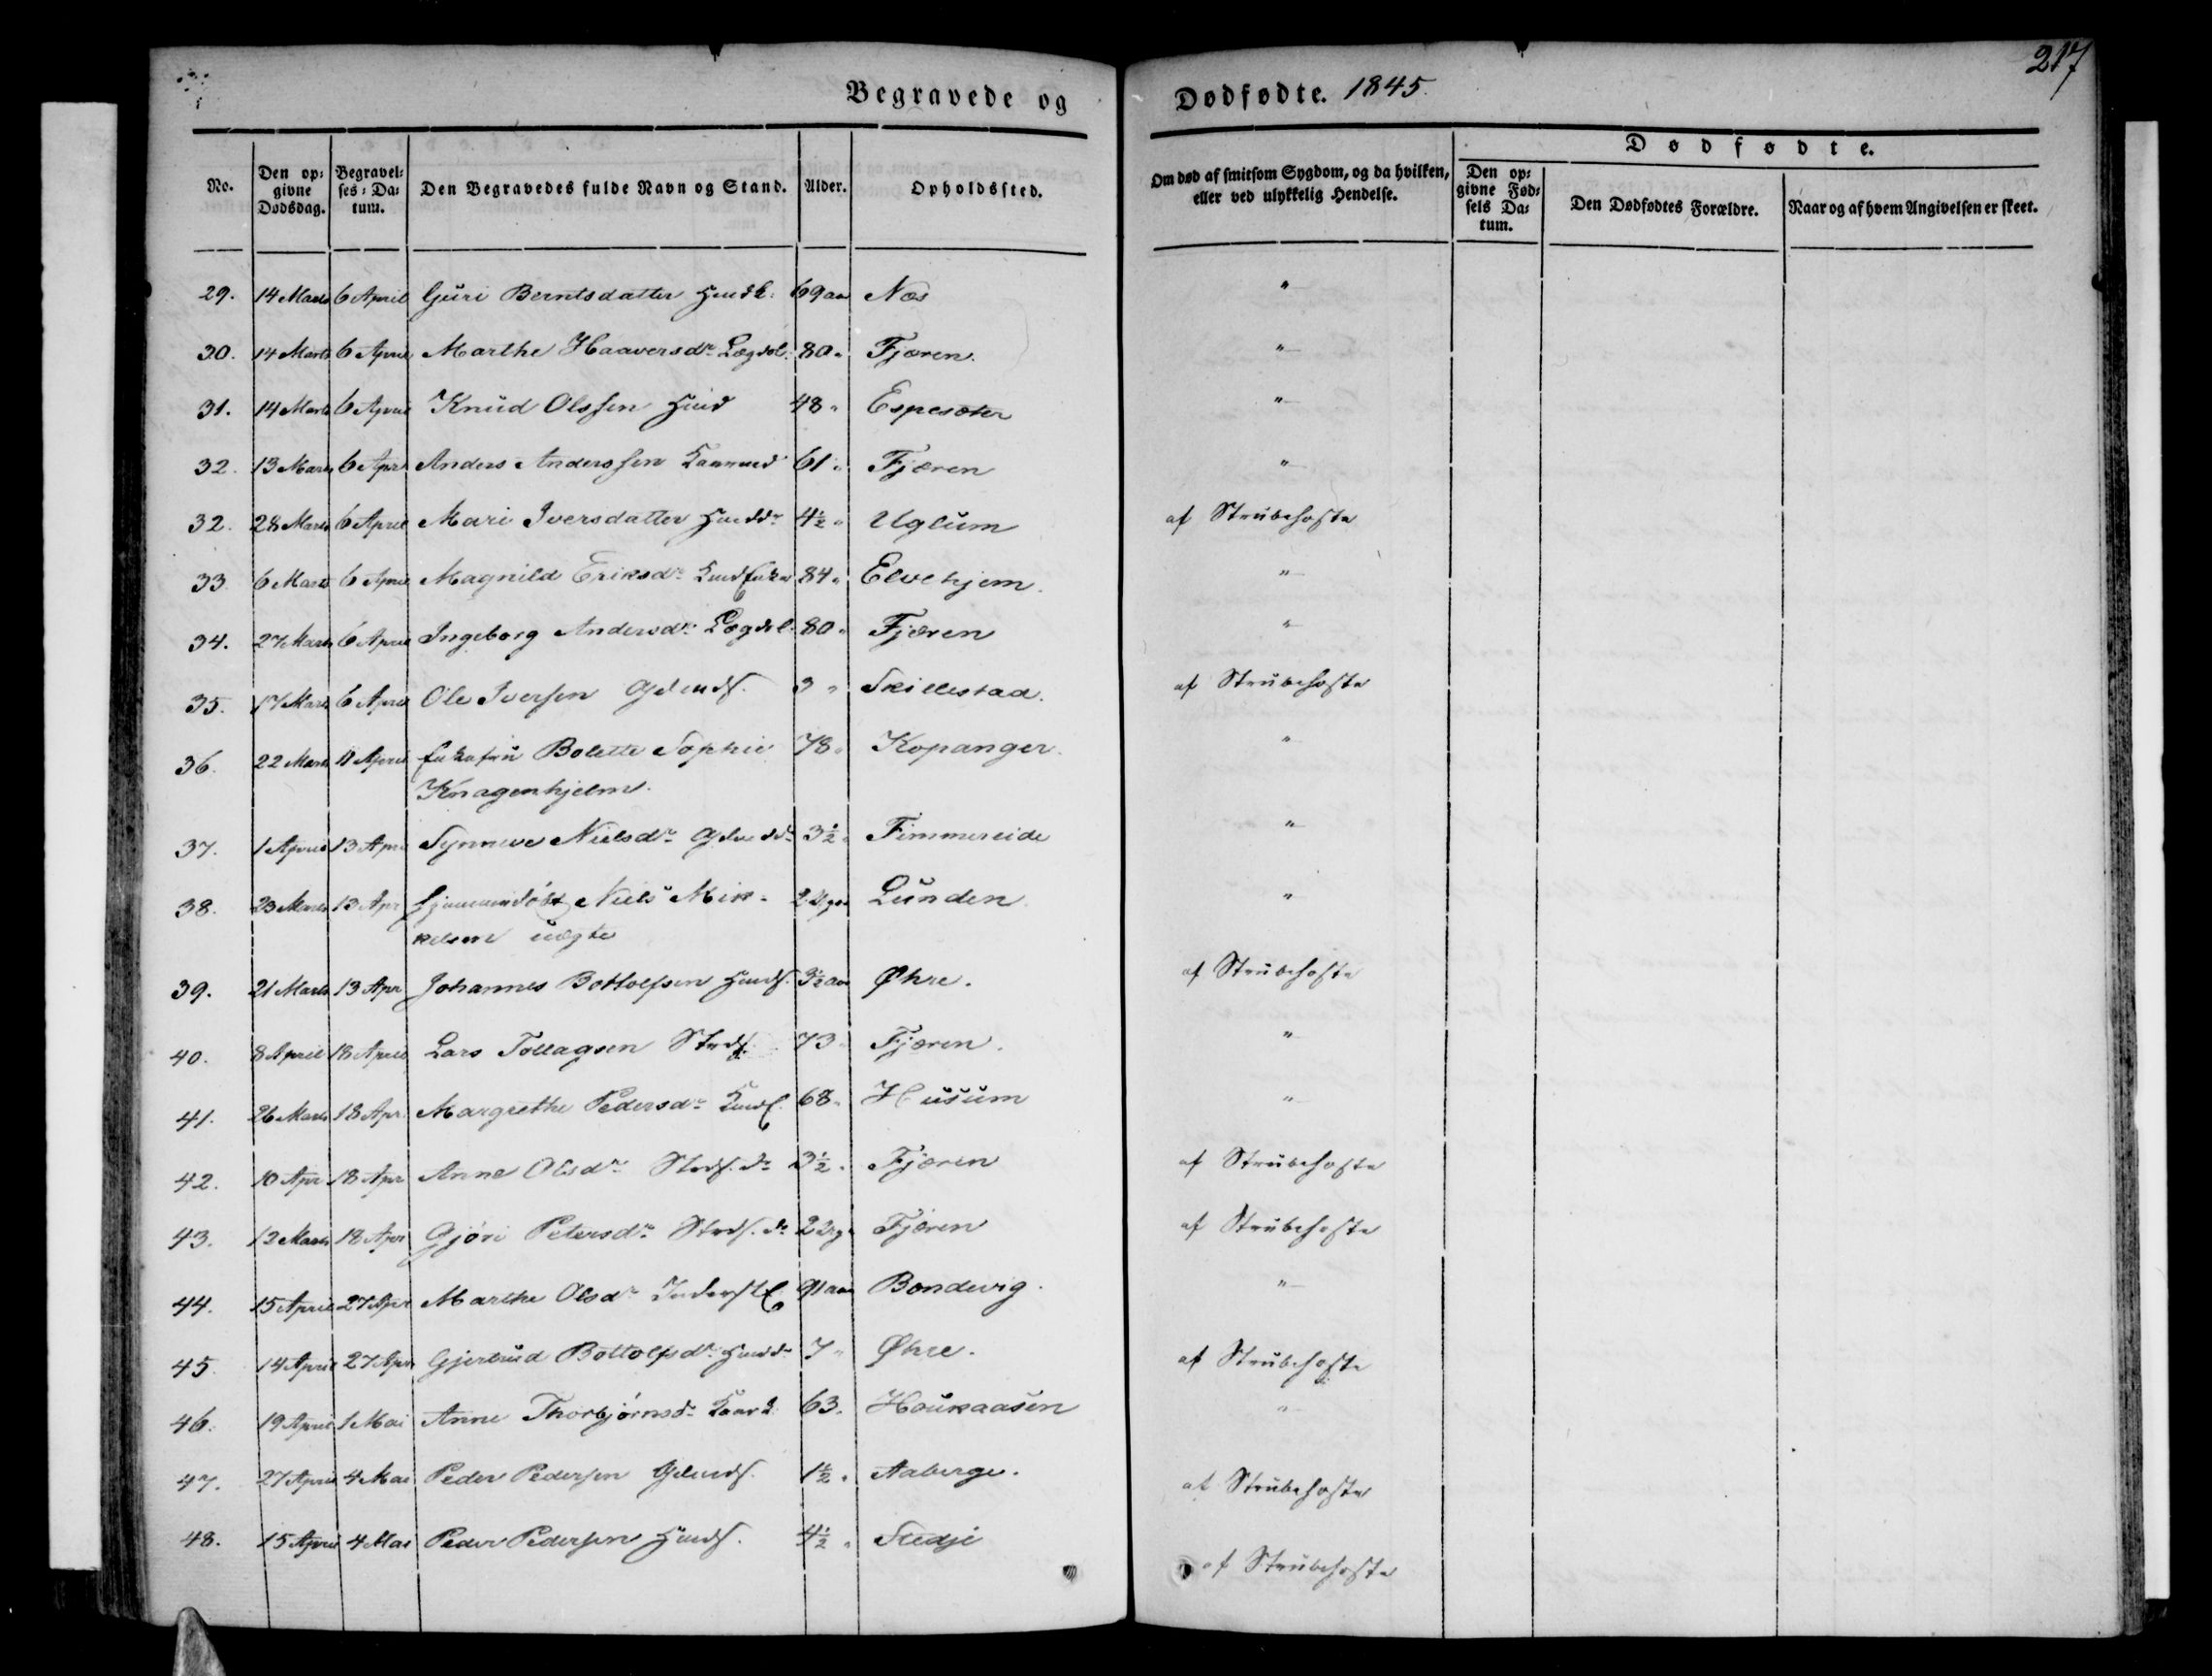 217
Begravede og Dødfødte. 1845.
No. Den op= givne Dødsdag. Begravel= ses = Da= tum. Den Begravedes fulde Navn og Stand. Alder. Opholdssted. Om død af smitsom Sygdom, og da hvilken, eller ved ulykkelig Hendelse. Dødfødte. Den op= givne Fød= sels Da= tum. Den Dødfødtes Forældre. Naar og af hvem Angivelsen er skeet.
29. 14 Marts 6 April Guri Berntsdatter 69 aar Næs "
30. 14 Marts 6 April Marthe Haaversdr Lægdsl. 80 " Fjæren. "
31. 14 Marts 6 April Knud Olssen Huusmd 48 " Espesæter "
32. 13 Marts 6 Apr Anders Anderssen Kaarmd 61 " Fjæren "
32. 28 Marts 6 April Mari Iversdatter 4½ " Uglum af Strubehoste
33 6 Marts 6 April Magnild Eriksdr 84 " Elvehjem. "
34. 27 Marts 6 April Ingeborg Andersdr Lægdsl. 80 " Fjæren "
35. 17 Marts 6 April Ole Iversen 3 " Skillestad. af Strubehoste
36. 22 Marts 11 April Enkefru Bolette Sophie 78 " Kopanger. "
Knagenhjelm.
37. 1 April 13 Apr Synneve Nielsdr 3½ " Fimmereide "
38. 23 Marts 13 Apr Hjemmedøbt Niels Mik= Lunden "
kelsen uægte
39. 21 Marts 13 Apr Johannes Bottolfsen 3½ aar Øhre. af Strubehoste
40. 8 April 18 April Lars Tollagsen 73 " Fjæren. "
41. 26 Marts 18 Apr. Margrethe Pedersdr 68 " Husum "
42. 10 Apr 18 Apr Anne Olsdr 3½ " Fjæren af Strubehoste
43. 13 Marts 18 Apr Gjøri Petersdr Fjæren af Strubehoste
44. 15 April 27 Apr Marthe Olsdr 91 aar Bondevig. "
45. 14 April 27 Apr Gjertrud Bottolfsdr 7 " Øhre. af Strubehoste
46. 19 April 1 Mai Anne Thorbjørnsdr 63. Houkaasen "
47. 27 April 4 Mai Peder Pedersen 1½ " Aaberge. af Strubehoste
48. 15 April 4 Mai Peder Pedersen 4½ " Stedje af Strubehoste